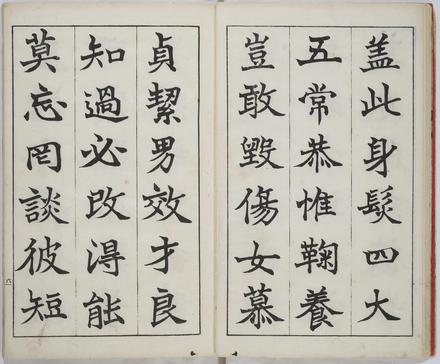 盖此身髮四大
五常恭惟鞠養
豈敢毀傷女慕
貞絜男效才良
知過必改得能
莫忘罔談彼短
六